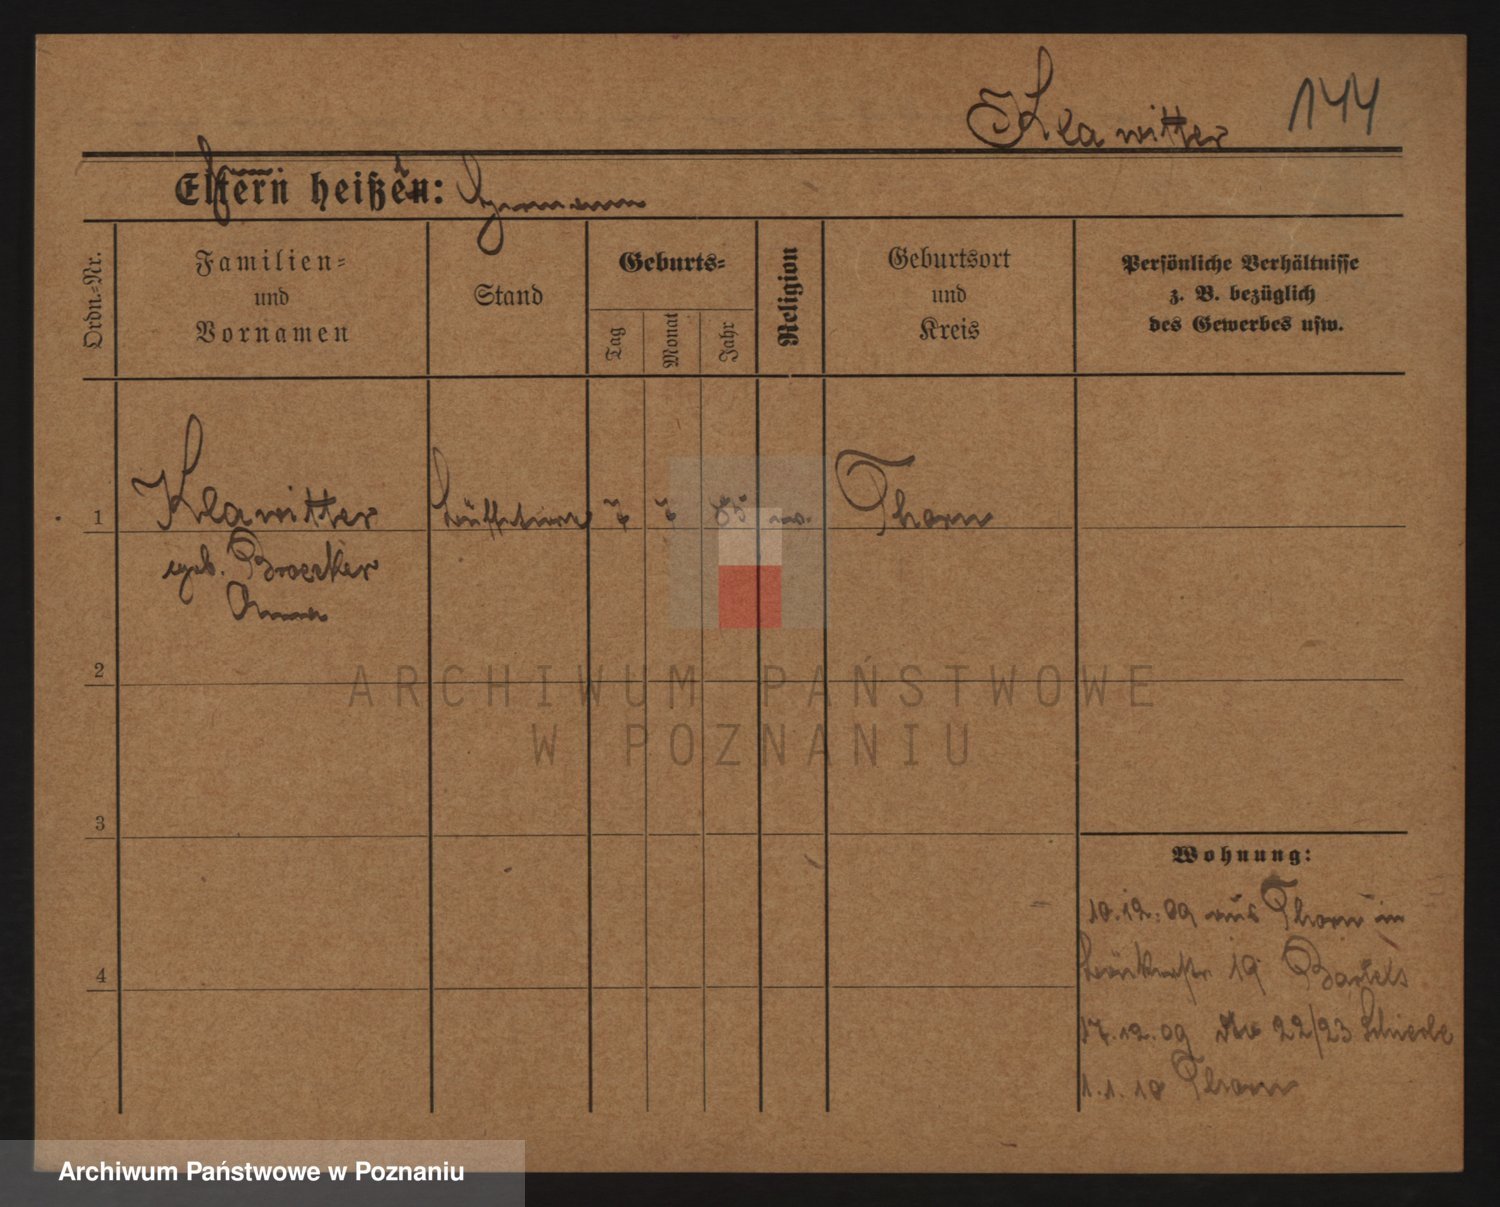 Klawitter 144
Eltern heißen: Hermann
Ordn.-Nr.
Familien-
und
Vornamen
Stand
Geburts-
Tag
Monat
Jahr
Religion
Geburtsort
und
Kreis
Persönliche Verhältnisse
z. B. bezüglich
des Gewerbes usw.
1 Klawitter 7 7 85 Thorn
geb. Broecker
Anna
2
3
4
Wohnung:
10.12.09 aus Thorn in
19 Bartels
17.12.09 22/23
1.1.10 Thorn
ARCHIWUM PAŃSTWOWE
W POZNANIU
Archiwum Państwowe w Poznaniu